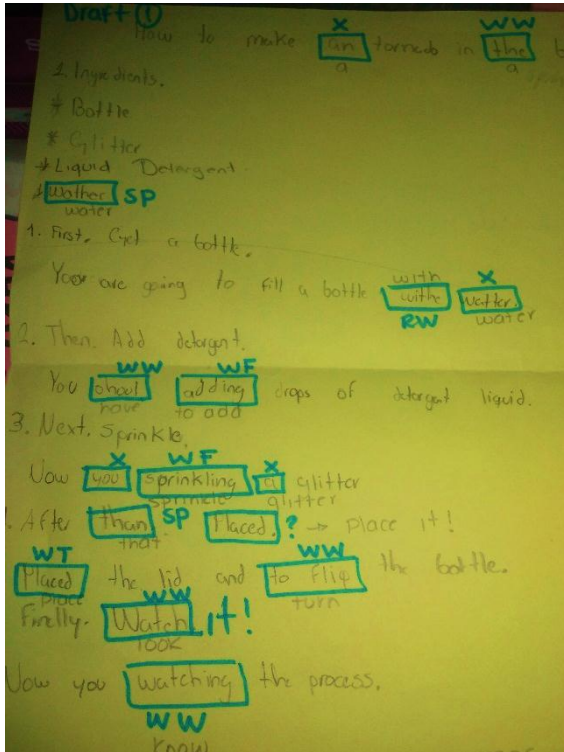 Draft 1
X WW
How to make an tornado in the
a a
1. Ingredients.
* Bottle
* Glitter
* Liquid Detergent
* Wather SP
water
1. First. Get a bottle.
with X
You are going to fill a bottle withe watter.
RW water
2. Then. Add detergent.
WW WF
You shoul adding drops of detergent liquid.
have to add
3. Next. Sprinkle.
X WF X
Now you sprinkling a glitter
sprinkle glitter
. After than SP Placed. ? → place it!
that
WT WW
Placed the lid and to flip the bottle.
place turn
WW
Finelly. Watch. it!
look
Now you watching the process.
WW
know